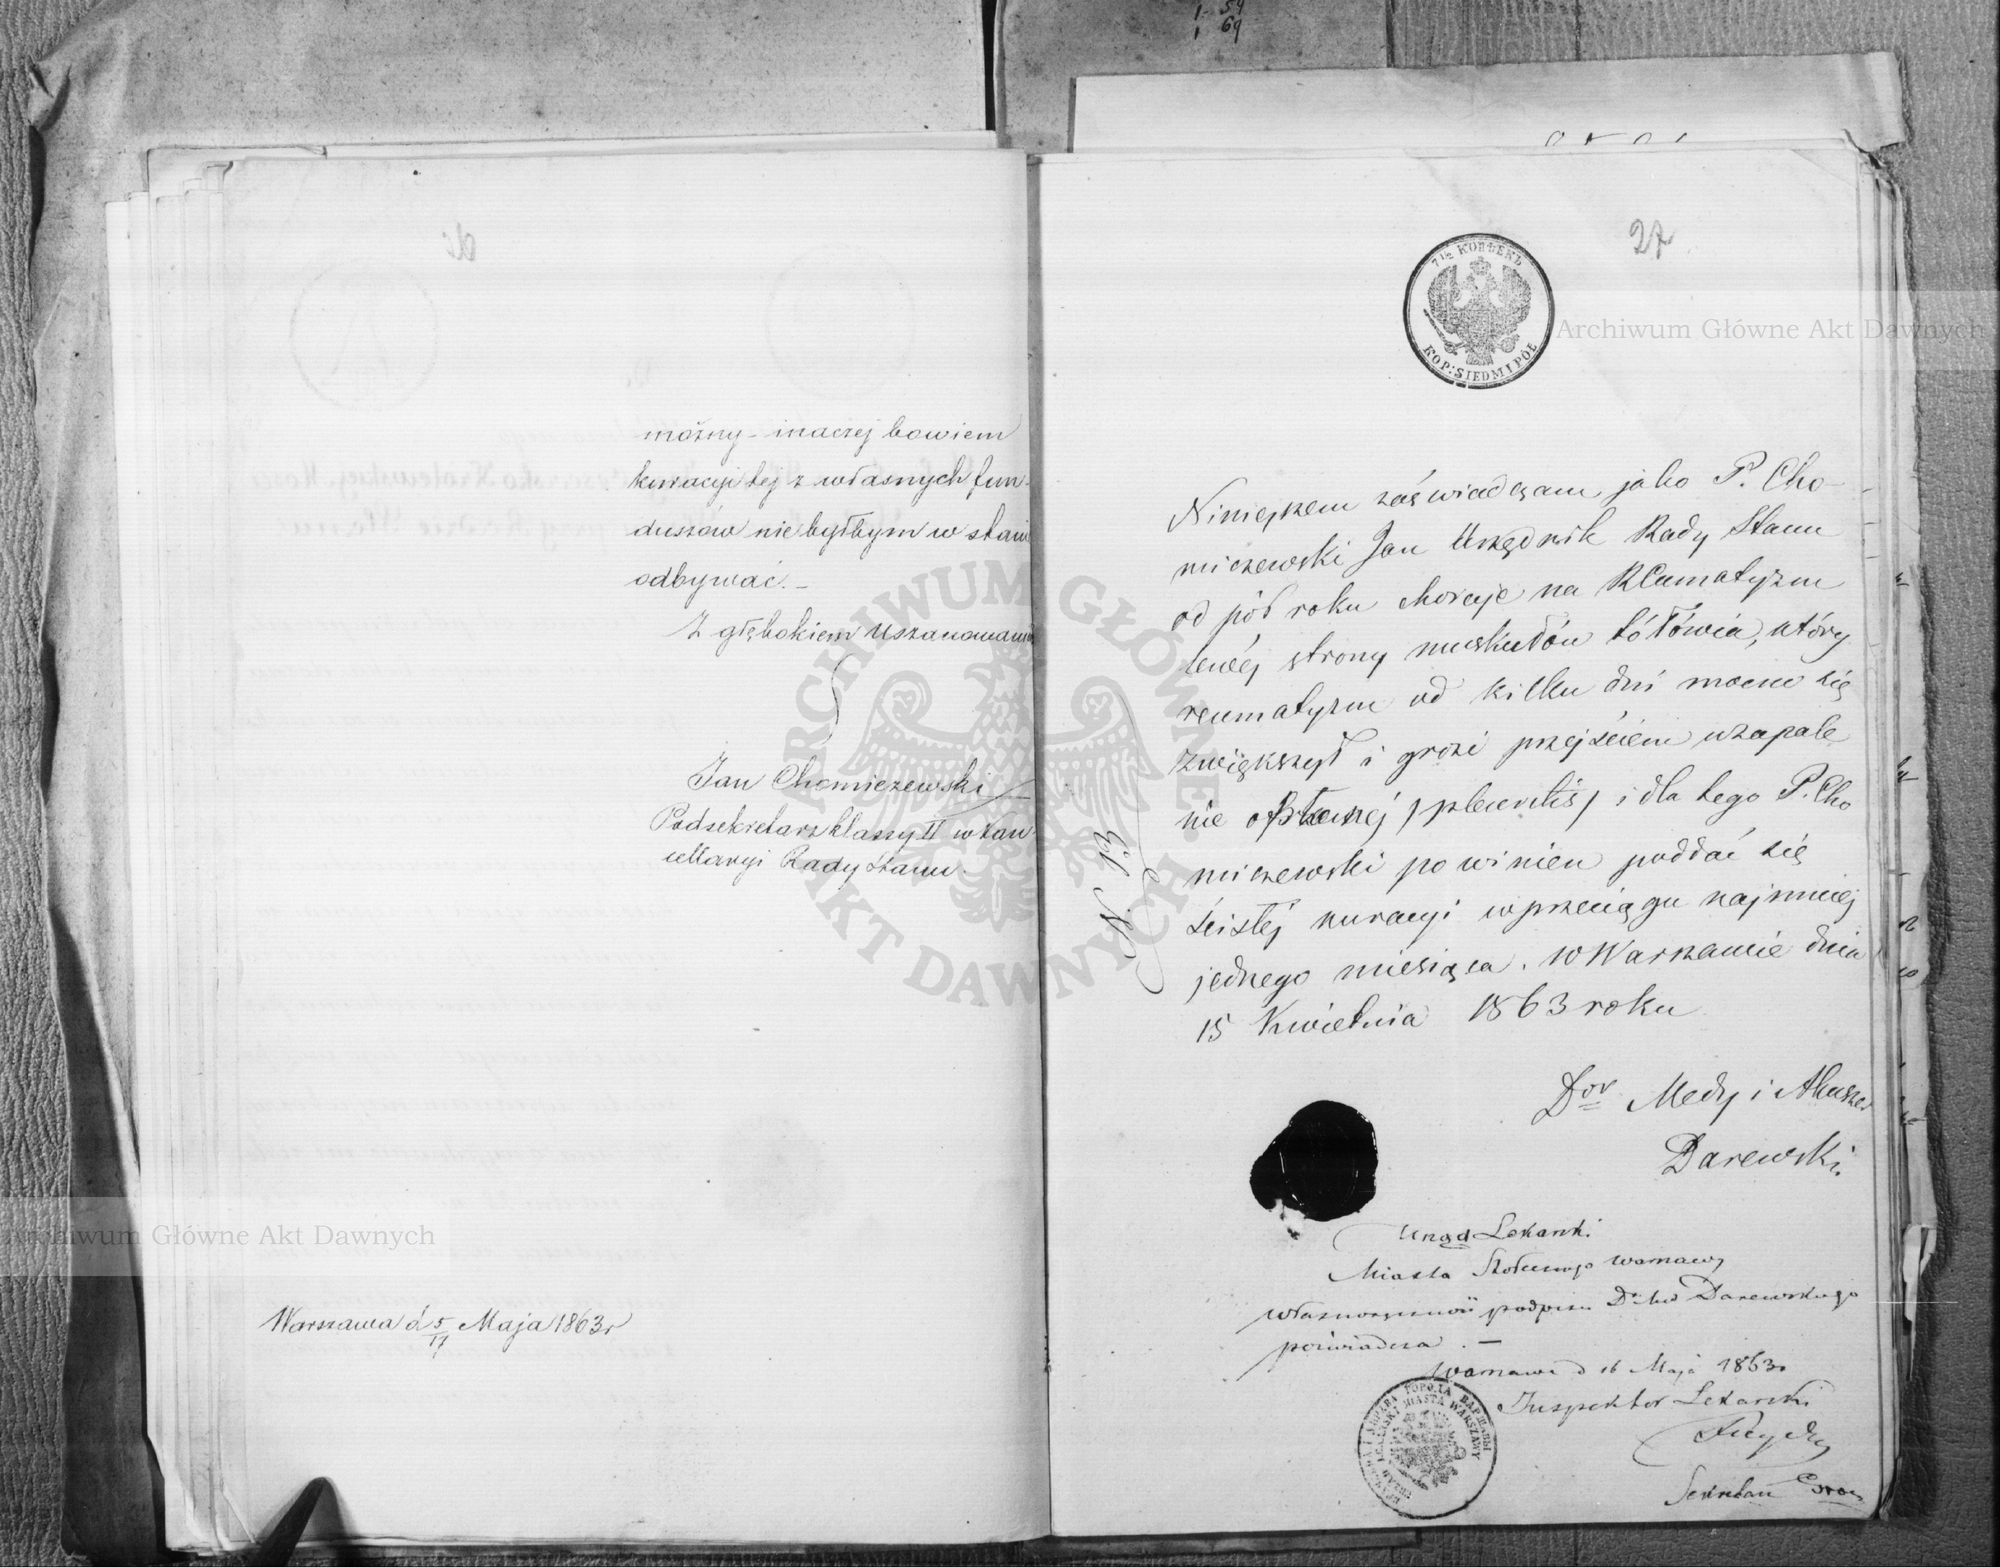 1 54
1 69
możny – inaczej bowiem
kuracyi tej z własnych fun-
duszów nie byłbym w stani
odbywać. –
Z głębokiem uszanowani
Jan Chomiczewski
Podsekretarz klassy II w Kan-
cellaryi Rady Stanu.
Warszawa d 5/17 Maja 1863 r
27
7 1/2 КОПѢЕКЪ
KOP: SIEDM I PÓŁ
Niniejszem zaświadczam jako P. Cho-
miczewski Jan Urzędnik Rady Stanu
od pół roku choruje na Reumatyzm
lewéj strony muskułów tółówia, który
reumatyzm od kilku dni mocno się
zwiększył i grozi przejściem w zapale
nie opłucnéj /pleuritis/ i dla tego P. Cho
miczewski powinien poddać się
ścisłéj kuracyi w przeciągu najmniej
jednego miesiąca. W Warszawie dnia
15 Kwietnia 1863 roku
Dor Medy i Akuszer
Darewski
Urząd Lekarski
Miasta Stołecznego Warszawy
własnoręczność podpisu Darewskiego
poświadcza. –
Warszawa d 16 Maja 1863 r
Inspektor Lekarski
Sekretarz
URZĄD LEKARSKI MIASTA WARSZAWY
ГОРОДА ВАРШАВЫ
Archiwum Główne Akt Dawnych
Archiwum Główne Akt Dawnych
ARCHIWUM GŁÓWNE AKT DAWNYCH